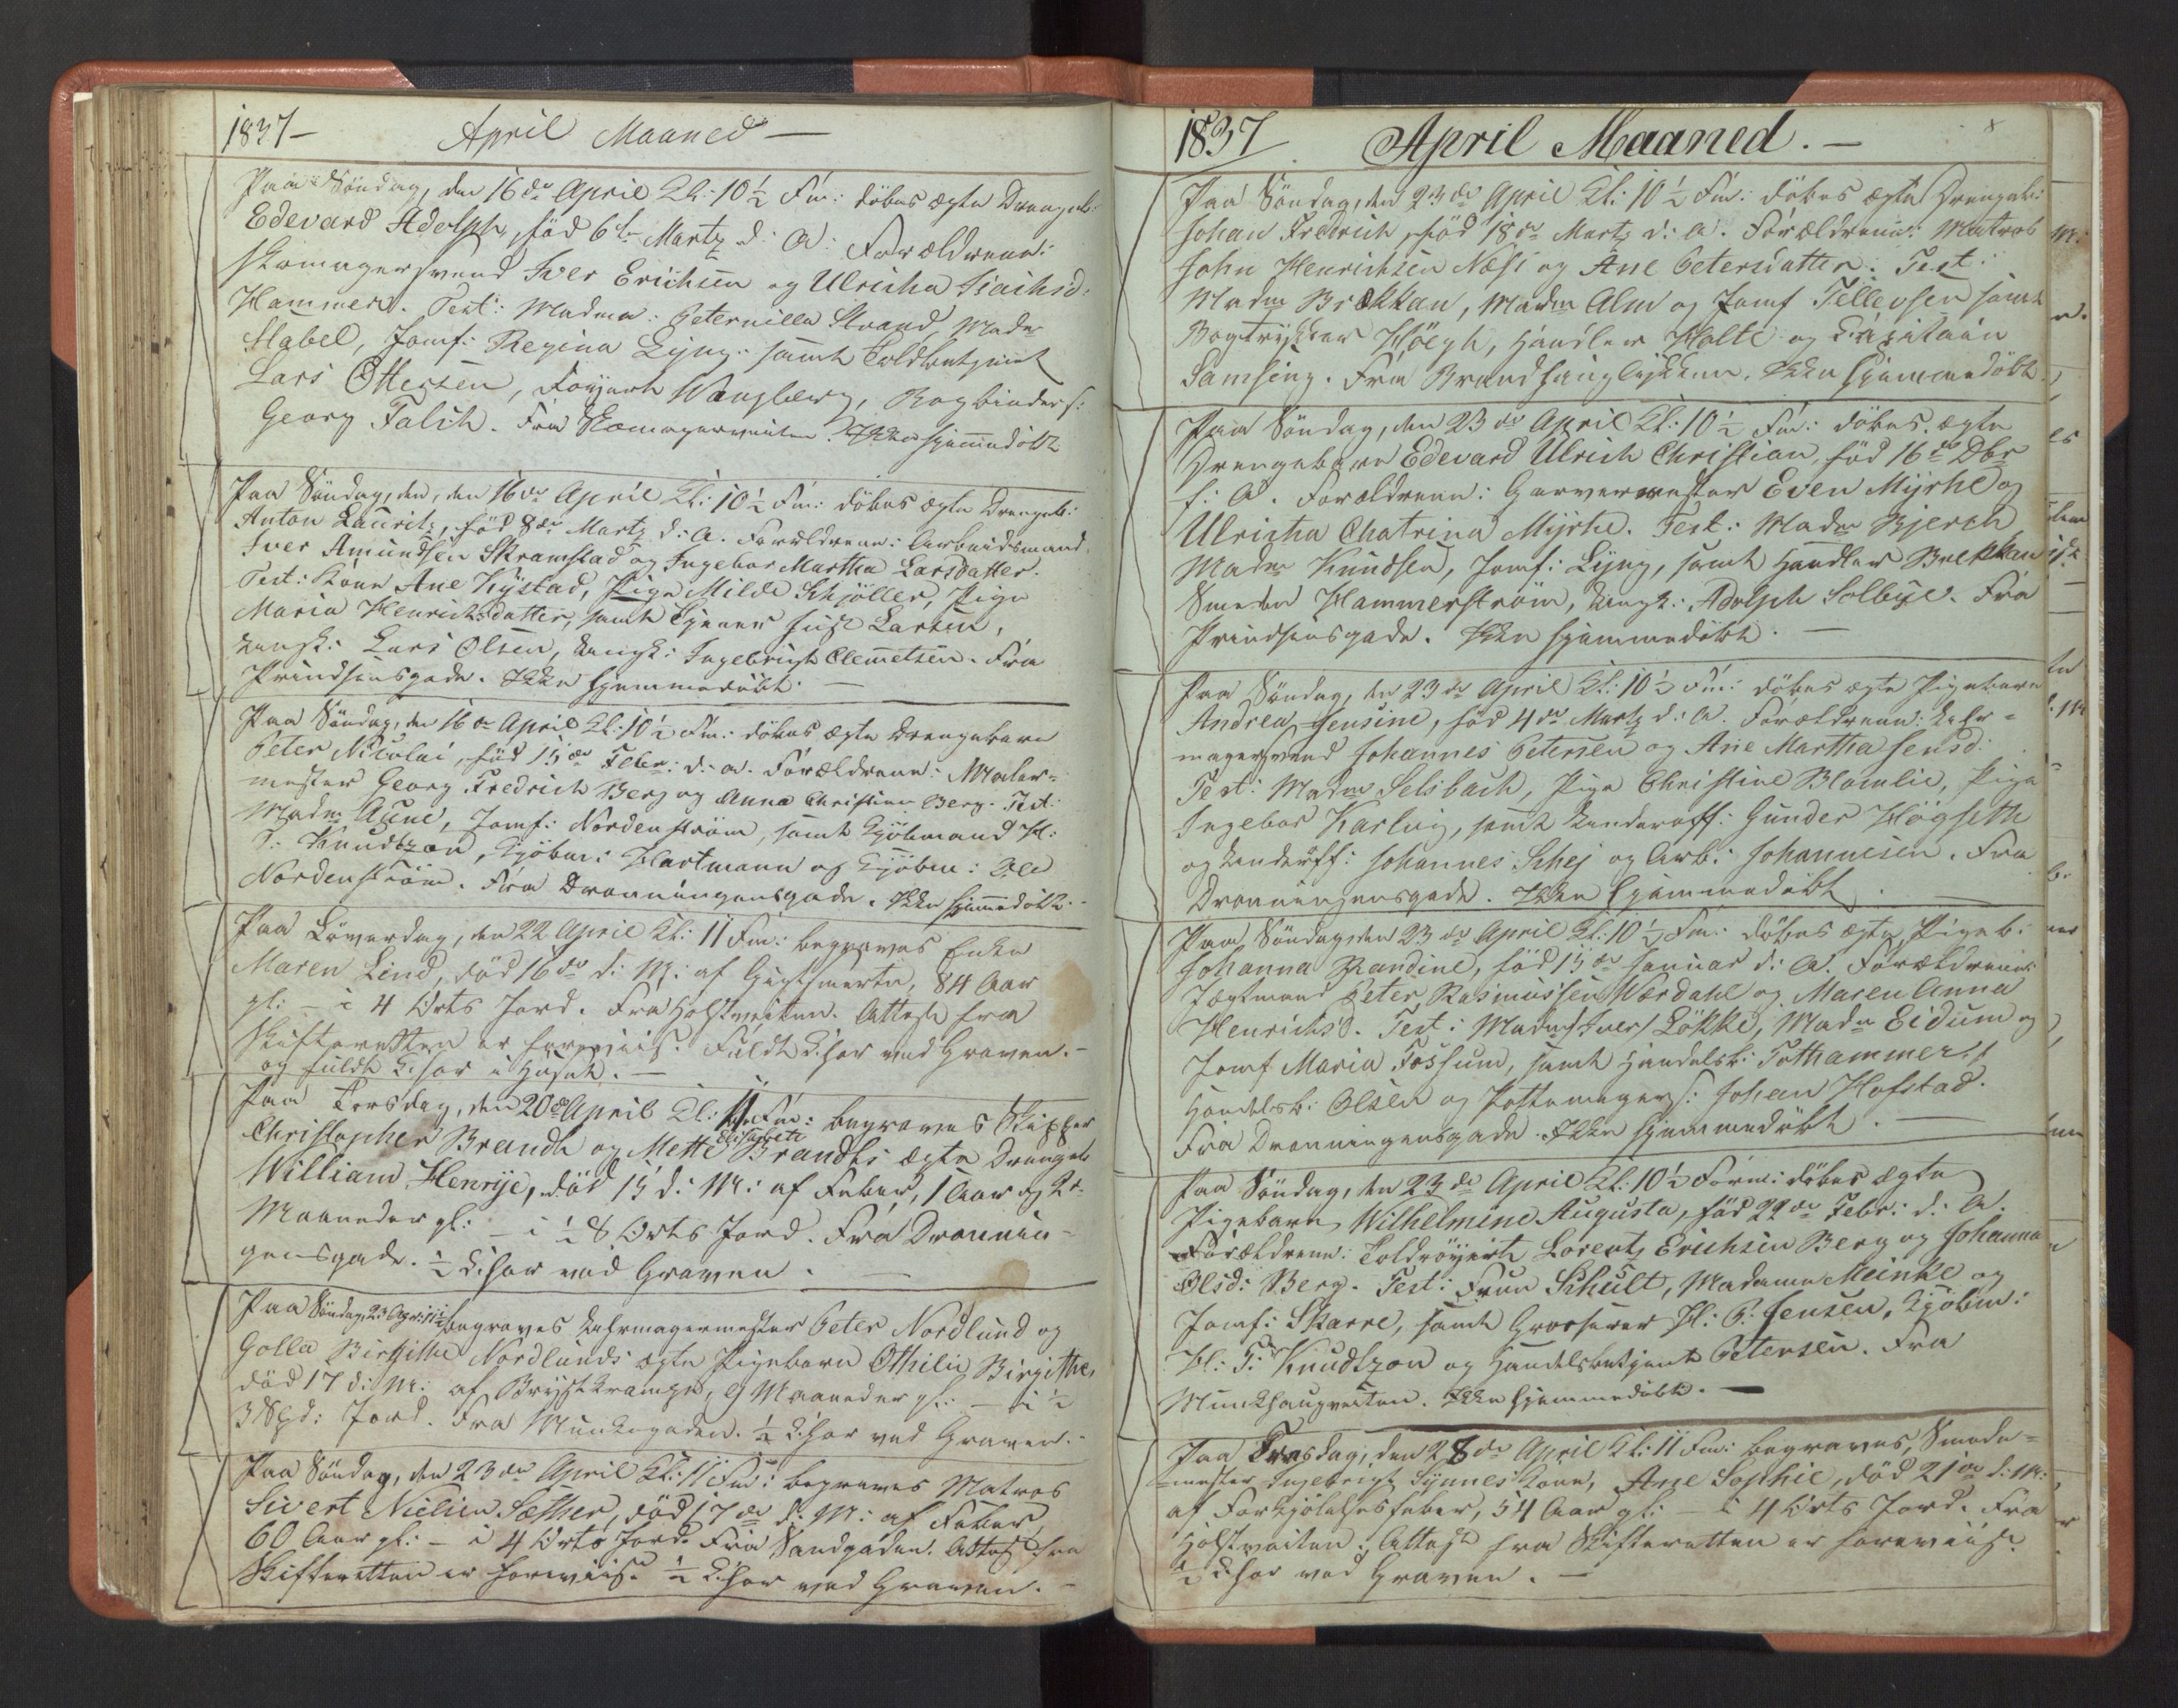 1837 –
April Maaned –
Paa Söndag, den 16de April Kl: 10½ Fm: döbes ægte Drengeb:
Edevard Adolph, föd 6te Martz d: A: Forældrene:
Skomagersvend Iver Erichsen og Ulricha Isachsd:
Hammer. Test: Madme: Peternille Strand, Madm
Stabel, Jomf: Regina Lyng: samt Toldbetjent
Lars Ottersen, Wangberg, Bogbinders:
Georg Falch. Fra . Ikke hjemmedöbt
Paa Söndag, den, den 16de April Kl: 10½ Fm: döbes ægte Drengeb:
Anton Lauritz, föd 8de Martz d: A. Forældrene: Arbeidsmand
Iver Amundsen Skramstad og Ingebor Martha Larsdatter.
Test: Kone Ane Kystad, Pige Milde Schjöller, Pige
Maria Henrichsdatter, samt Tjener Just Larsen,
Ungk: Lars Olsen, Ungk: Ingebrigt Clemetsen. Fra
Prindsensgade. Ikke hjemmedöbt. –
Paa Söndag, den 16de April Kl: 10½ Fm: döbes ægte Drengebarn
Peter Nicolai, föd 15de Febr: d: A. Forældrene: Maler-
mester Georg Fredrich Berg og Anna Christina Berg. Test:
Madm: Aune, Jomf: Nordenström, samt Kjöbmand H:
T: Knudtzon, Kjöbm: Hartmann og Kjöbm: Ole
Nordenström. Fra Dronningensgade. Ikke hjemmedöbt. –
Paa Löverdag, den 22 April Kl: 11 Fm: begraves Enke
Maren Lind, död 16de d: M: af Gigtsmerte, 84 Aar
gl: – i 4 Orts Jord. Fra Holstveiten. Attest fra
Skifteretten er foreviist. Fuldt Chor ved Graven. –
og fuldt Chor i Huset. –
Paa Torsdag, den 20de April Kl: 11 Fm: begraves Skipper
Christopher Brandt og Mette Elisabeth Brandts ægte Drengeb
William Henrye, död 15 d: M: af Feber, 1 Aar og 2
Maaneder gl: – i ½ 8 Orts Jord. Fra Dronnin-
gensgade. ½ Chor ved Graven. –
Paa Söndag, 23 Apr: 11½ begraves Uhrmagermester Peter Nordlund og
Golla Birgithe Nordlunds ægte Pigebarn Othilie Birgithe,
död 17 d: M: af Brystkrampe, 9 Maaneder gl: – i ½
3 Spd: Jord. Fra Munkegaden. ½ Chor ved Graven. –
Paa Söndag, den 23de April Kl: 11 Fm: begraves Matros
Sivert Nielsen Sæther, död 17de d: M: af Feber
60 Aar gl: – i 4 Orts Jord. Fra Sandgaden. Attest fra
Skifteretten er foreviist. ½ Chor ved Graven. –
1837 April Maaned. –
Paa Söndag, den 23de April Kl: 10½ Fm: döbes ægte Drengeb:
Johan Fredrich, föd 18de Martz d: A. Forældrene: Matros
John Henrichsen Næss og Ane Petersdatter. Test:
Madm Brækkan, Madm Alm og Jomf Tellevsen samt
Bogtrykker Höegh, Handler Holte og
Samsing. Fra . Ikke hjemmedöbt.
Paa Söndag, den 23de April Kl: 10½ Fm: döbes ægte
Drengebarn Edevard Ulrich Christian, föd 16de Dbr
f: A. Forældrene: Garvermester Even Myrhe og
Ulricha Chatrina Myrhe. Test: Madm Bjerch
Madm Knudsen, Jomf: Lyng, samt Handler Brekkan
Smeden Hammerström, Ungk: Adolph Solbye. Fra
Prindsensgade. Ikke hjemmedöbt. –
Paa Söndag, den 23de April Kl: 10½ Fm: döbes ægte Pigebarn
Andrea Jensine, föd 4de Martz d: A. Forældrene: Uhr-
magersvend Johannes Petersen og Ane Martha Jensd:
Test: Madm Selsbach, Pige Christine Blomlie, Pige
Ingebor Karlvig, samt Underoff: Gunder Högseth
og Underoff: Johannes Schej og Arb: Johannesen. Fra
Dronningensgade. Ikke hjemmedöbt. –
Paa Söndag den 23de April Kl: 10½ Fm: döbes ægte Pigeb:
Johanna Randine, föd 15de Januar d: A. Forældrene:
Jægtmand Peter Rasmussen Værdahl og Maren Anna
Henrichsd. Test: Madm Iver Lökke, Madm Eidum og
Jomf Maria Fossum, samt Handelsb: Tothammer,
Handelsb: Olsen og Pottemagers: Johan Hofstad.
Fra Dronningensgade. Ikke hjemmedöbt. –
Paa Söndag, den 23de April Kl: 10½ Form: döbes ægte
Pigebarn Wilhelmine Augusta, föd 22de Febr: d: A.
Forældrene: Toldröyert Lorentz Erichsen Berg og Johanna
Olsd: Berg. Test: Frue Schult, Madame Meinke og
Jomf: Skarre, samt Grosserer H: P: Jensen, Kjöbm:
H: T: Knudtzon og Handelsbetjent Petersen. Fra
Munkhaugveiten. Ikke hjemmedöbt. –
Paa Torsdag, den 28de April Kl: 11 Fm: begraves, Smede-
mester Ingebrigt Synnes Kone, Ane Sophie, död 21de d: M:
af Forkjölelsesfeber, 54 Aar gl: – i 4 Orts Jord. Fra
Holstveiten. Attest fra Skifteretten er foreviist.
½ Chor ved Graven. –